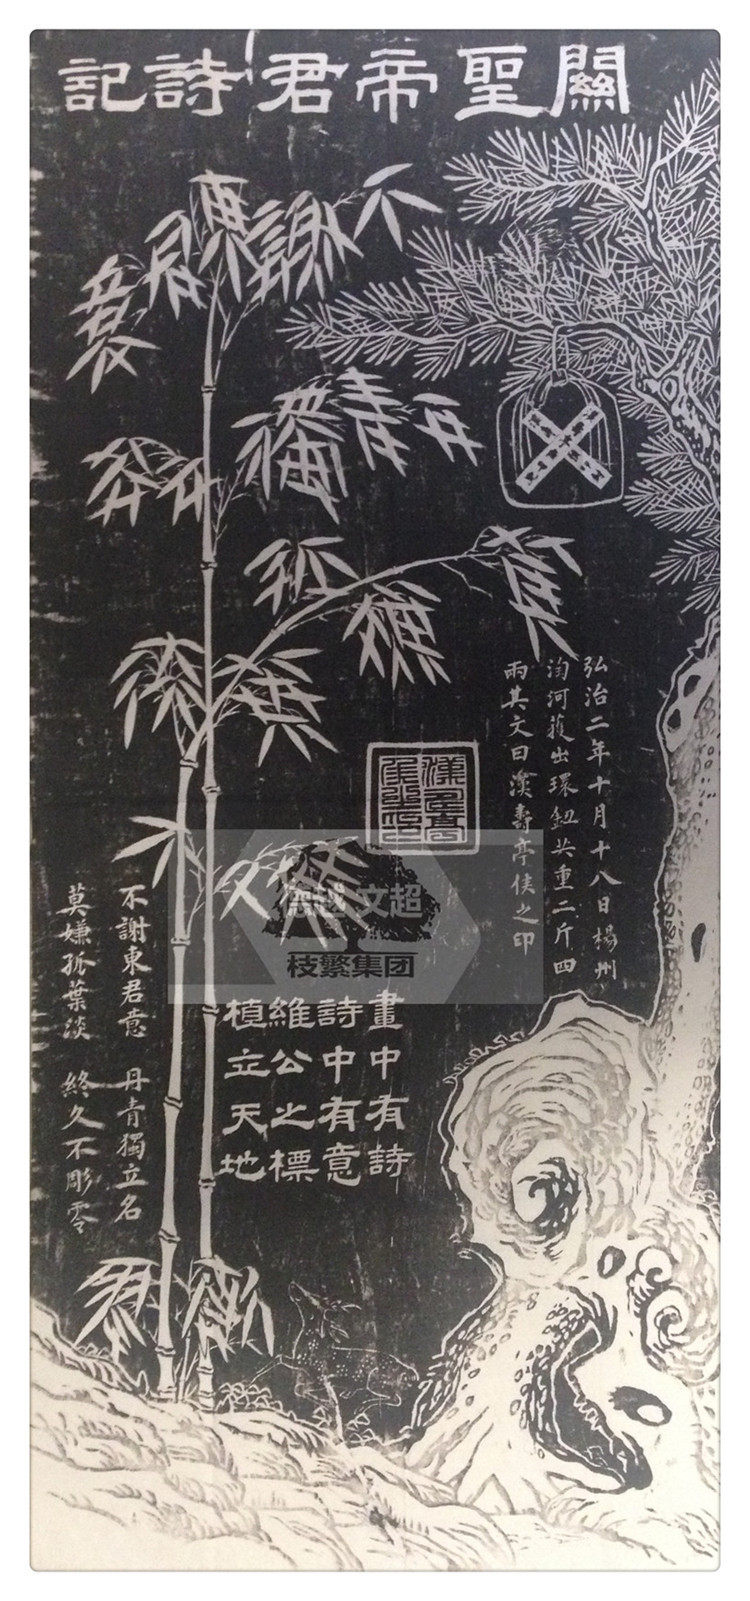 關聖帝君詩記
不謝東君意
丹青獨立名
莫嫌孤葉淡
終久不彫零
弘治二年十月十八日楊州
淘河獲出環鈕共重二斤四
兩其文曰漢壽亭侯之印
漢壽亭
侯之印
畫中有詩
詩中有意
維公之標
植立天地
不謝東君意 丹青獨立名
莫嫌孤葉淡 終久不彫零
越 文超
枝繁集团